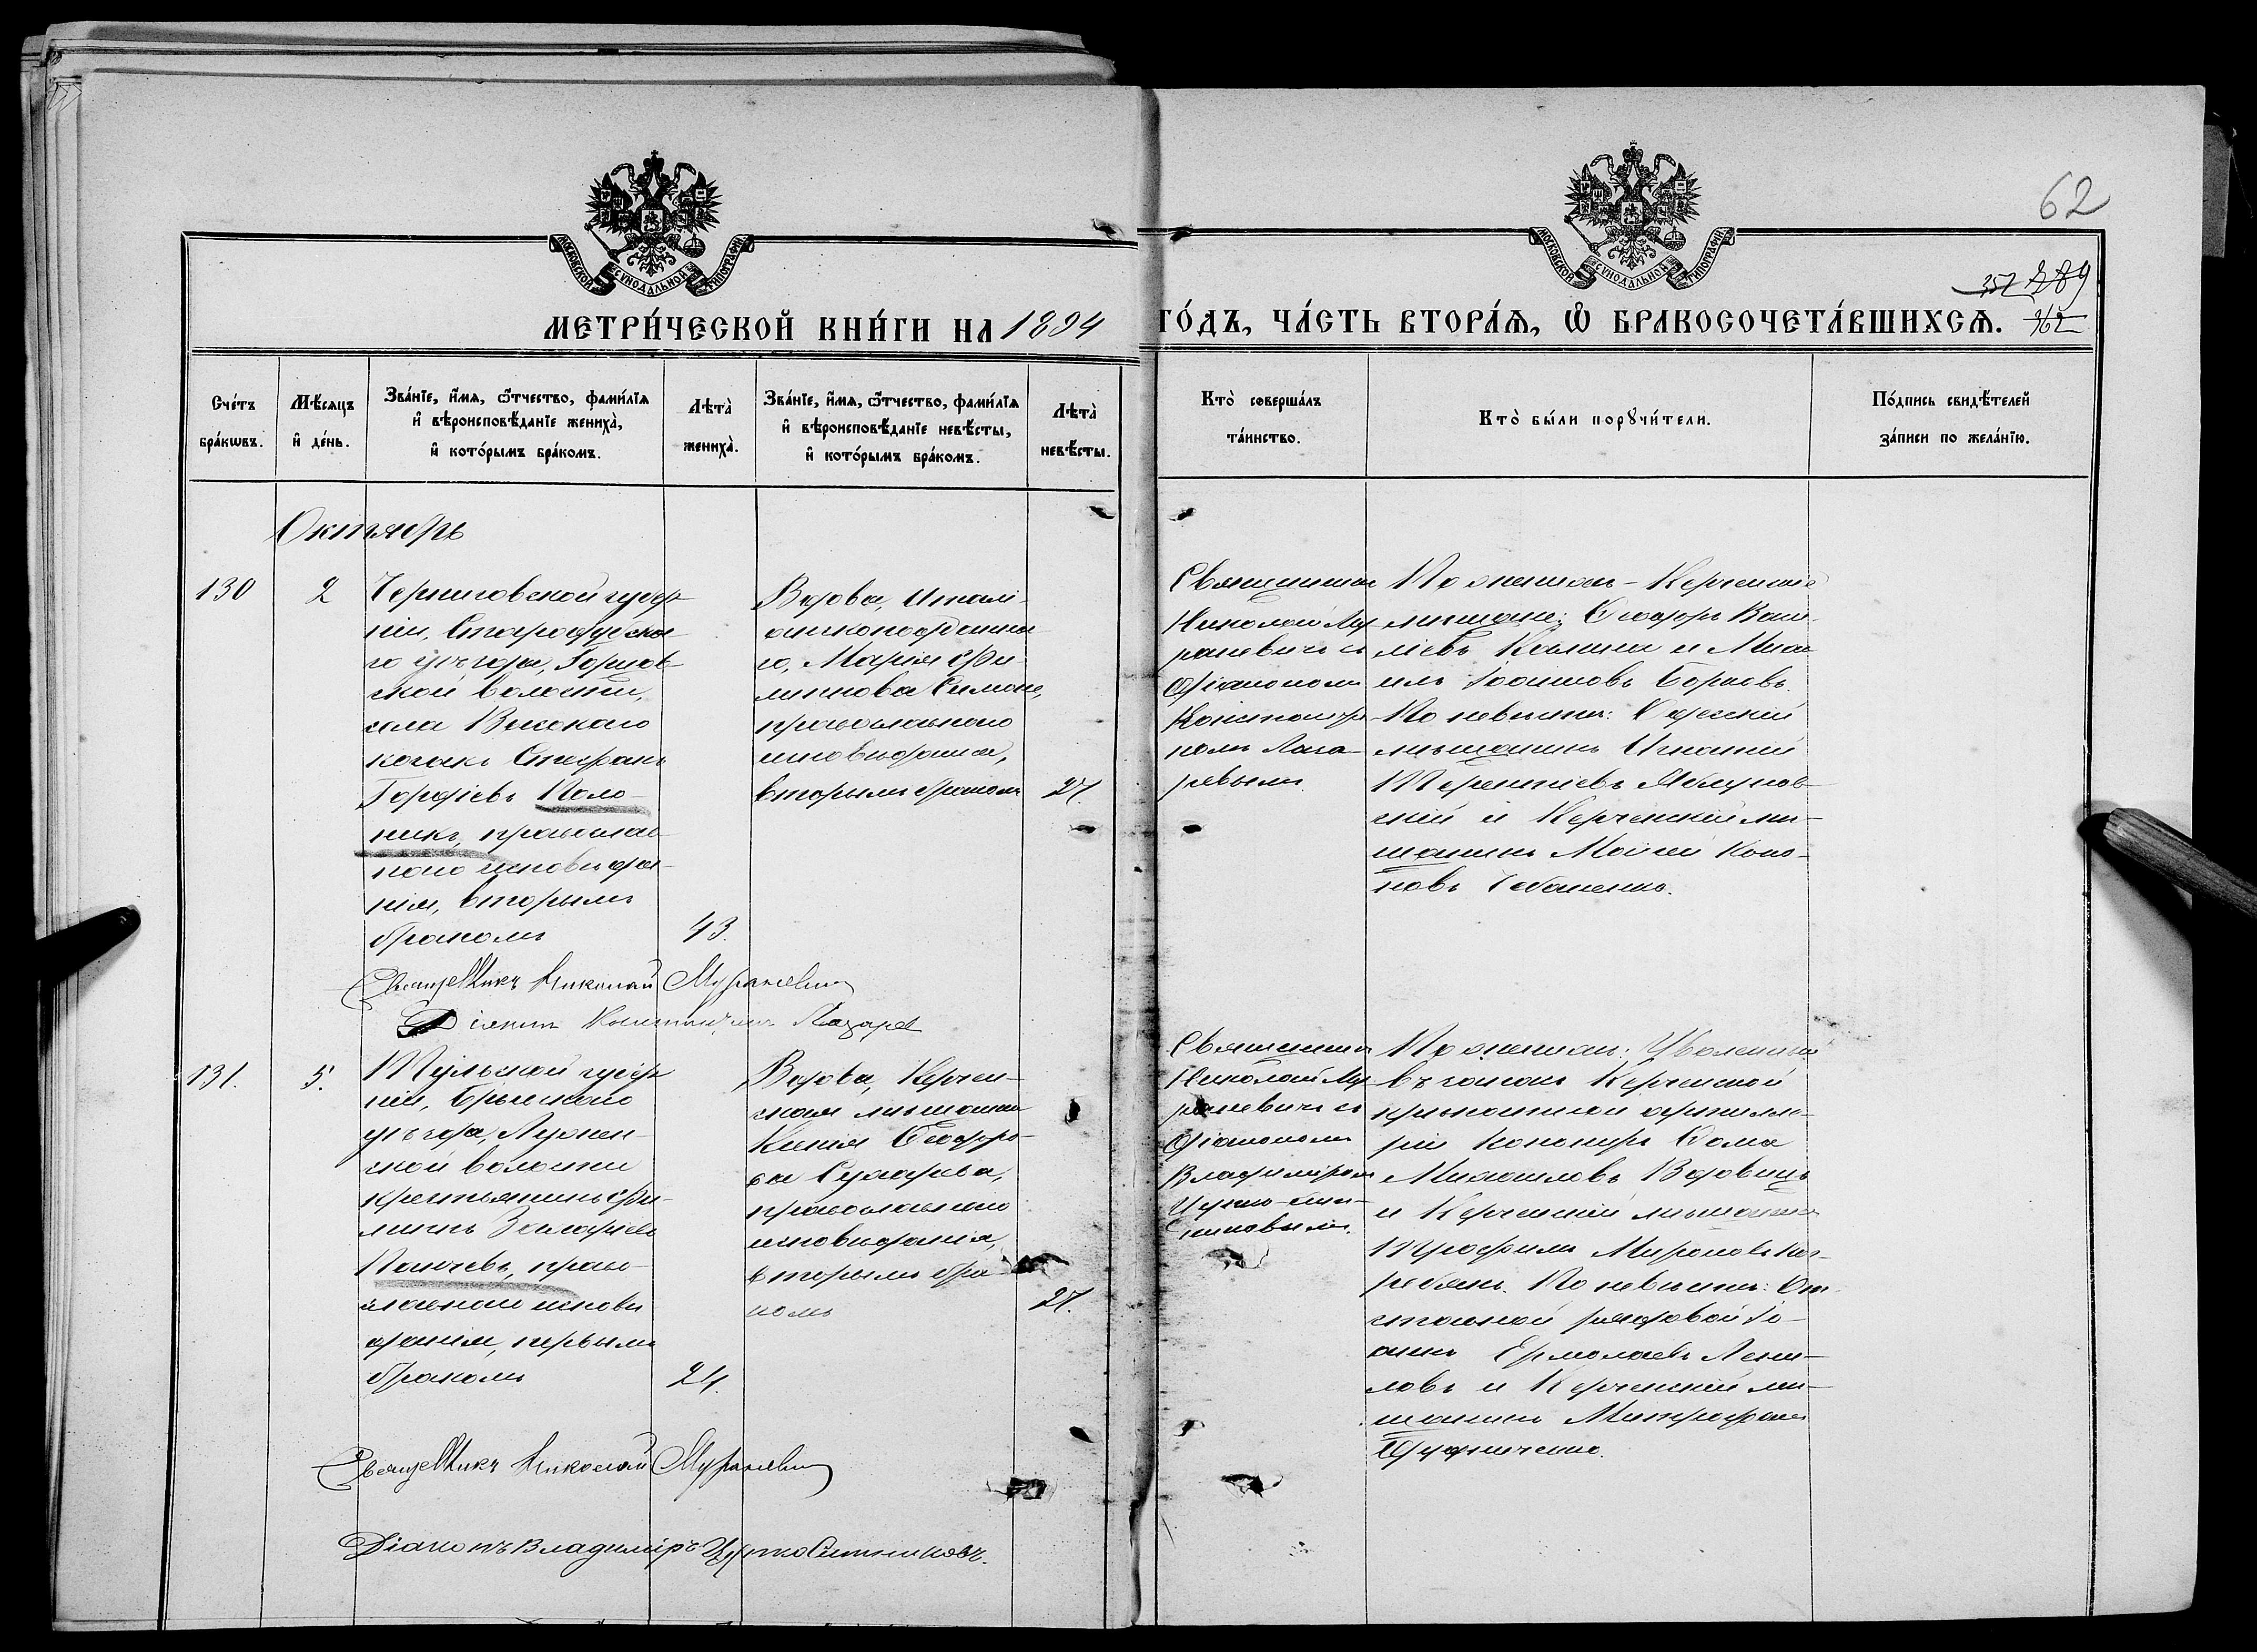 62
МОСКОВСКОЙ СУНОДАЛЬНОЙ ТИПОГРАФІИ
МОСКОВСКОЙ СУНОДАЛЬНОЙ ТИПОГРАФІИ
357 289
362
МЕТРИ́ЧЕСКОЙ КНИ́ГИ НА 1894 ГО́ДЪ, ЧА́СТЬ ВТОРА́Я, Ѽ БРАКОСОЧЕТА́ВШИХСЯ.
Сче́тъ
бра́кѡвъ.
Мѣ́сяцъ
и҆ де́нь.
Зва́нїе, и҆́мя, ѻ҆́тчество, фами́лїя
и҆ вѣроисповѣ́данїе жениха̀,
и҆ кото́рымъ бра́комъ.
Лѣта̀
жениха̀.
Зва́нїе, и҆́мя, ѻ҆́тчество, фами́лїя
и҆ вѣроисповѣ́данїе невѣ́сты,
и҆ кото́рымъ бра́комъ.
Лѣта̀
невѣ́сты.
Кто̀ соверша́лъ
та́инство.
Кто̀ бы́ли порꙋчи́тели.
По́дпись свидѣ́телей
за́писи по жела́нїю.
Октябрь
130
2
Черниговской губер
ніи, Стародубска
го уѣзда,
ской волости,
села Высокаго
козакъ Стефанъ
Гордіевъ Коло-
никъ, православ
наго исповѣда
нія, вторымъ
бракомъ
43.
Вдова, Итал
янскоподданна
го, Марія Фи
липпова Симоне,
православнаго
исповѣданія,
вторымъ бракомъ
27.
Священникъ
Николай Му
раневичъ съ
діакономъ
Константи
номъ Лаза
ревымъ.
По женихѣ - Керченскіе
мѣщане: Ѳеодоръ Васи
ліевъ Калина и Миха
илъ Іоанновъ Борковъ.
По невѣстѣ: Одесскій
мѣщанинъ Игнатій
Терентіевъ Яблунов
скій и Керченскій мѣ
щанинъ Моисей Коно
новъ Чебаненко.
Священникъ Николай Мураневичъ
Діаконъ Константинъ Лазаревъ
131.
5.
Тульской губер
ніи,
уѣзда,
ской волости
крестьянинъ Фи
липпъ Захаріевъ
православнаго исповѣ
данія, первымъ
бракомъ
24.
Вдова, Керчен
ская мѣщанка
Ксенія Ѳеодоро
ва Сухарева,
православнаго
исповѣданія,
вторымъ бра
комъ
27.
Священникъ
Николай Му
раневичъ съ
діакономъ
Владиміромъ
Цурко-Сит
никовымъ.
По женихѣ: Уволенный
въ запасъ Керченской
крѣпостной артилле
ріи канониръ Ѳома
Михаиловъ Вдовицъ
и Керченскій мѣщанинъ
Трофимъ Мироновъ Ко
ребякъ. По невѣстѣ: От
ставной рядовой Іо
аннъ Ермолаевъ
и Керченскій мѣ
щанинъ Митрофанъ
Священникъ Николай Мураневичъ
Діаконъ Владиміръ Цурко Ситниковъ.